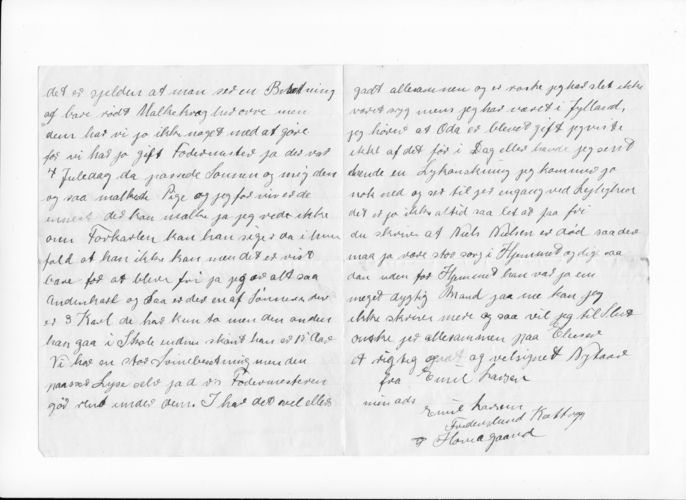 det er sjelden at man ser en Besetning
af bare rødt Malkekvæg herovre men
dem har vi jo ikke noget med at gøre
for vi har jo gift Fodermester ja der var
4 Juledag da passede Sønnen og mig dem
og saa malkede Pige og jeg for vi er de
eneste der kan malke ja jeg ved ikke
om Forkarlen kan han siger da i hvert
fald at han ikke kan men det er vist
bare for at blive fri ja jeg er alt saa
Andenkarl og saa er der en af Sønnerne der
er 3 Karl de har kun to men den anden
han gaa i Skole endnu skønt han er 15 Aar
Vi har en stor Svinebesætning men den
passer selv ja Fodermesteren
gør rent under dem. I har det vel ellers
godt allesammen og er raske jeg har slet ikke
været syg mens jeg har været i Jylland,
jeg hører at Oda er blevet gift jeg viste
ikke af det før i Dag ellers havde jeg sent
hende en Lykønskning jeg kommer jo
nok ned og ser til jer engang ved Lejlighed
det er jo ikke altid saa let at faa fri
du skriver at Niels Nielsen er død saa der
maa jo være stor sorg i Hjemmet og lige saa
dan uden for Hjemmet han var jo en
meget dygtig Mand ja nu kan jeg
ikke skrive mere og saa vil jeg til Slut
ønske jer allesammen paa Thurø
et rigtig godt og velsignet Nytaar
fra Emil Larsen
min ads
Emil Larsen
Frederslund
Hovedgaard